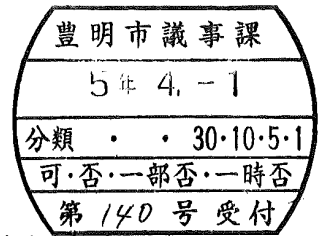 豊明市議事課
5年 4. -1
分類 ・ ・ 30・10・5・1
可・否・一部否・一時否
第 140 号 受付